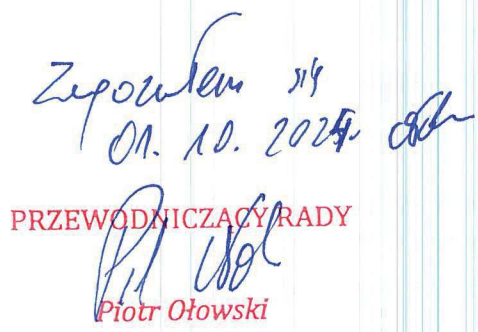 Zapoznałem się
01.10.2024r.
PRZEWODNICZĄCY RADY
Piotr Ołowski